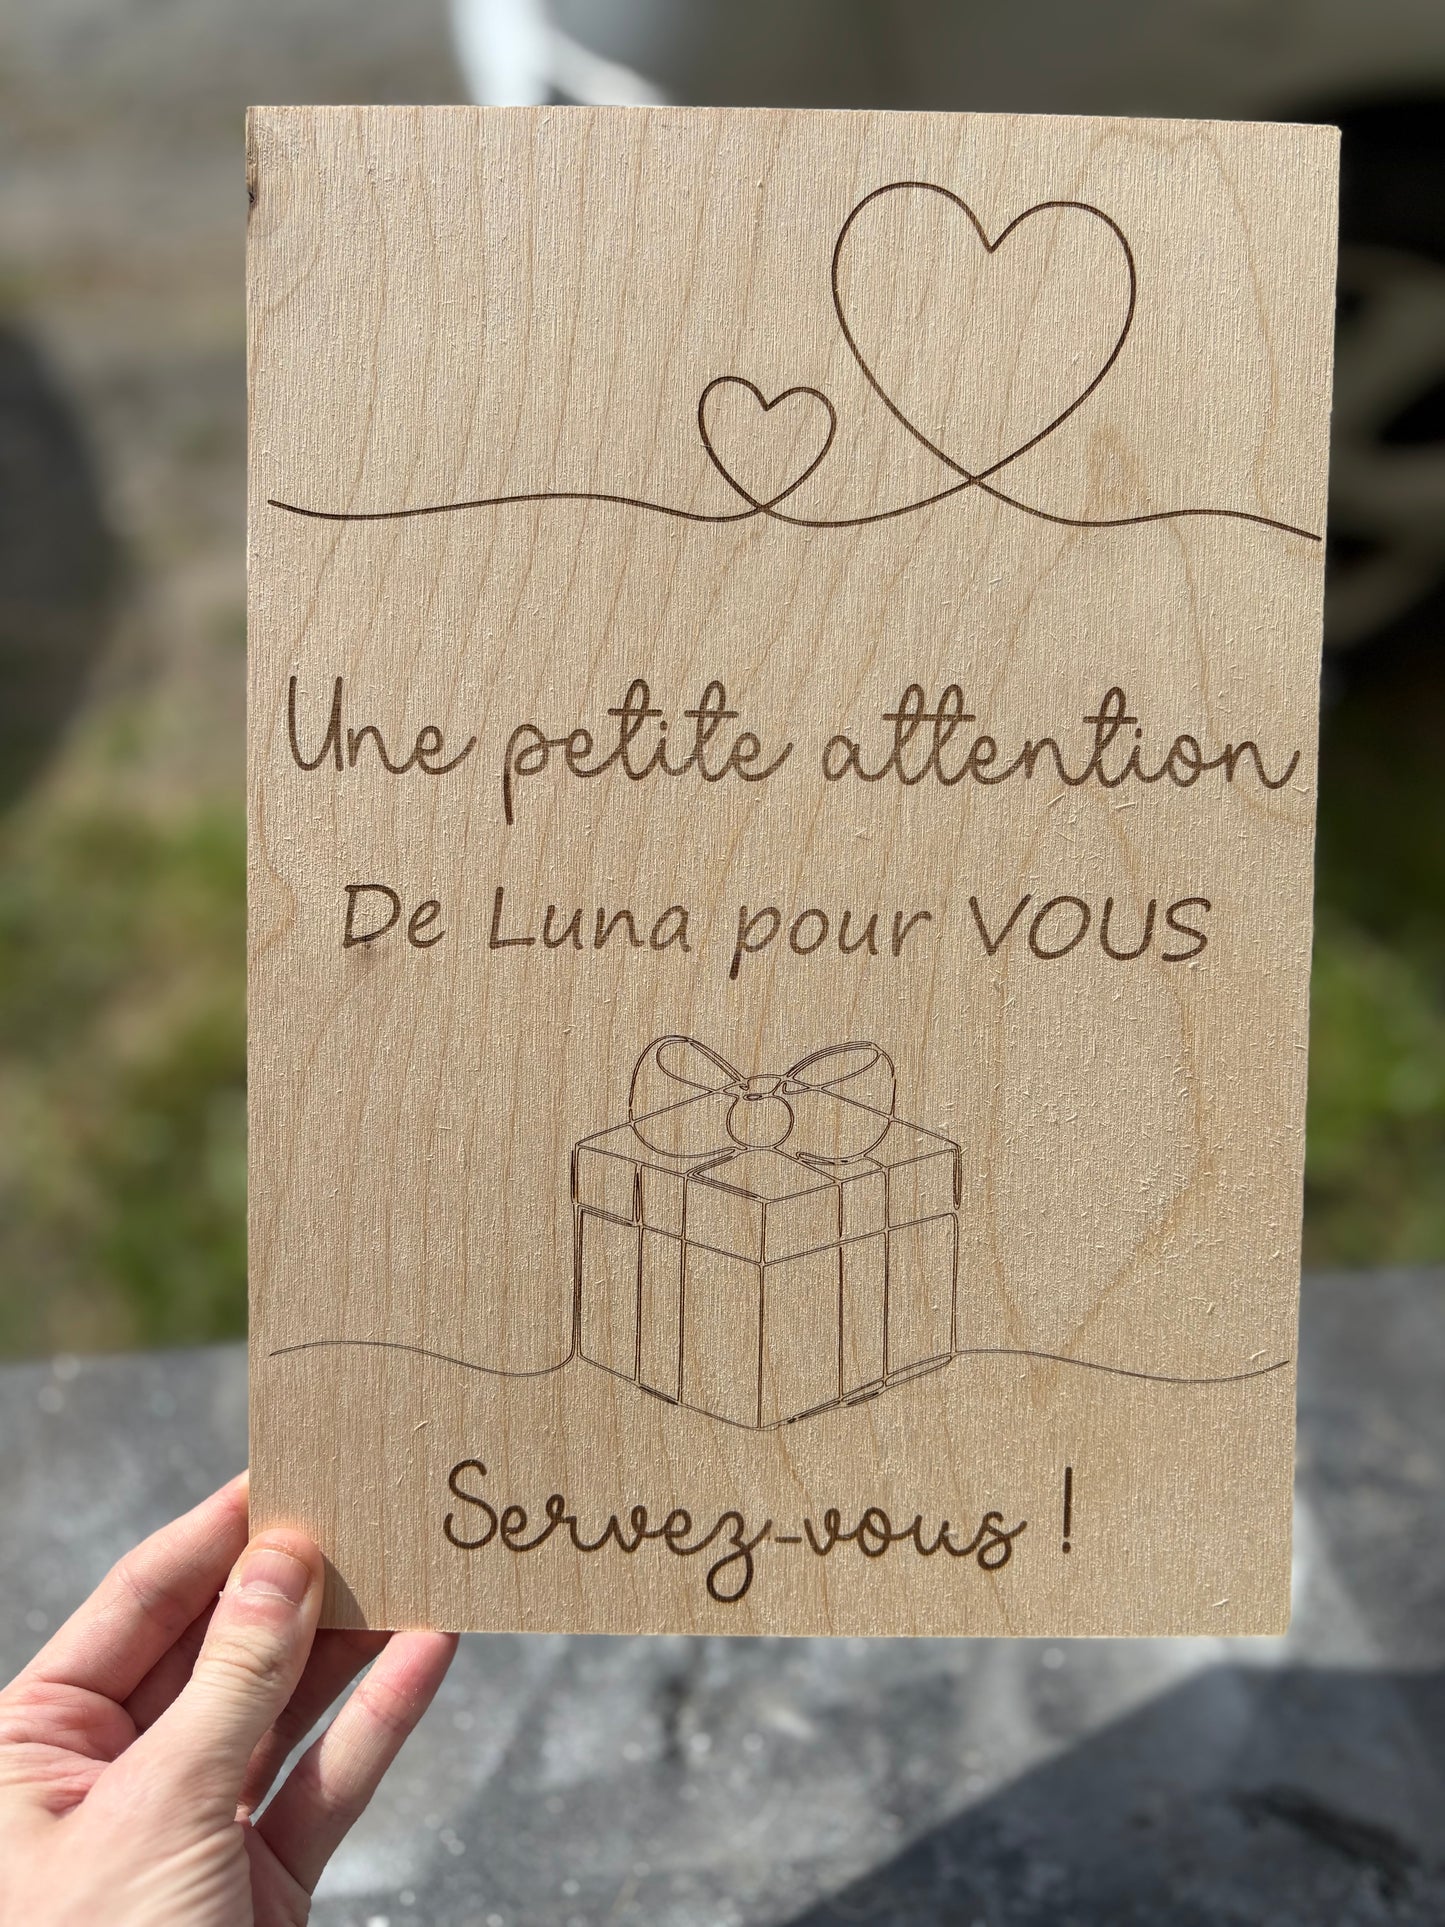 Une petite attention
De Luna pour VOUS
Servez-vous !